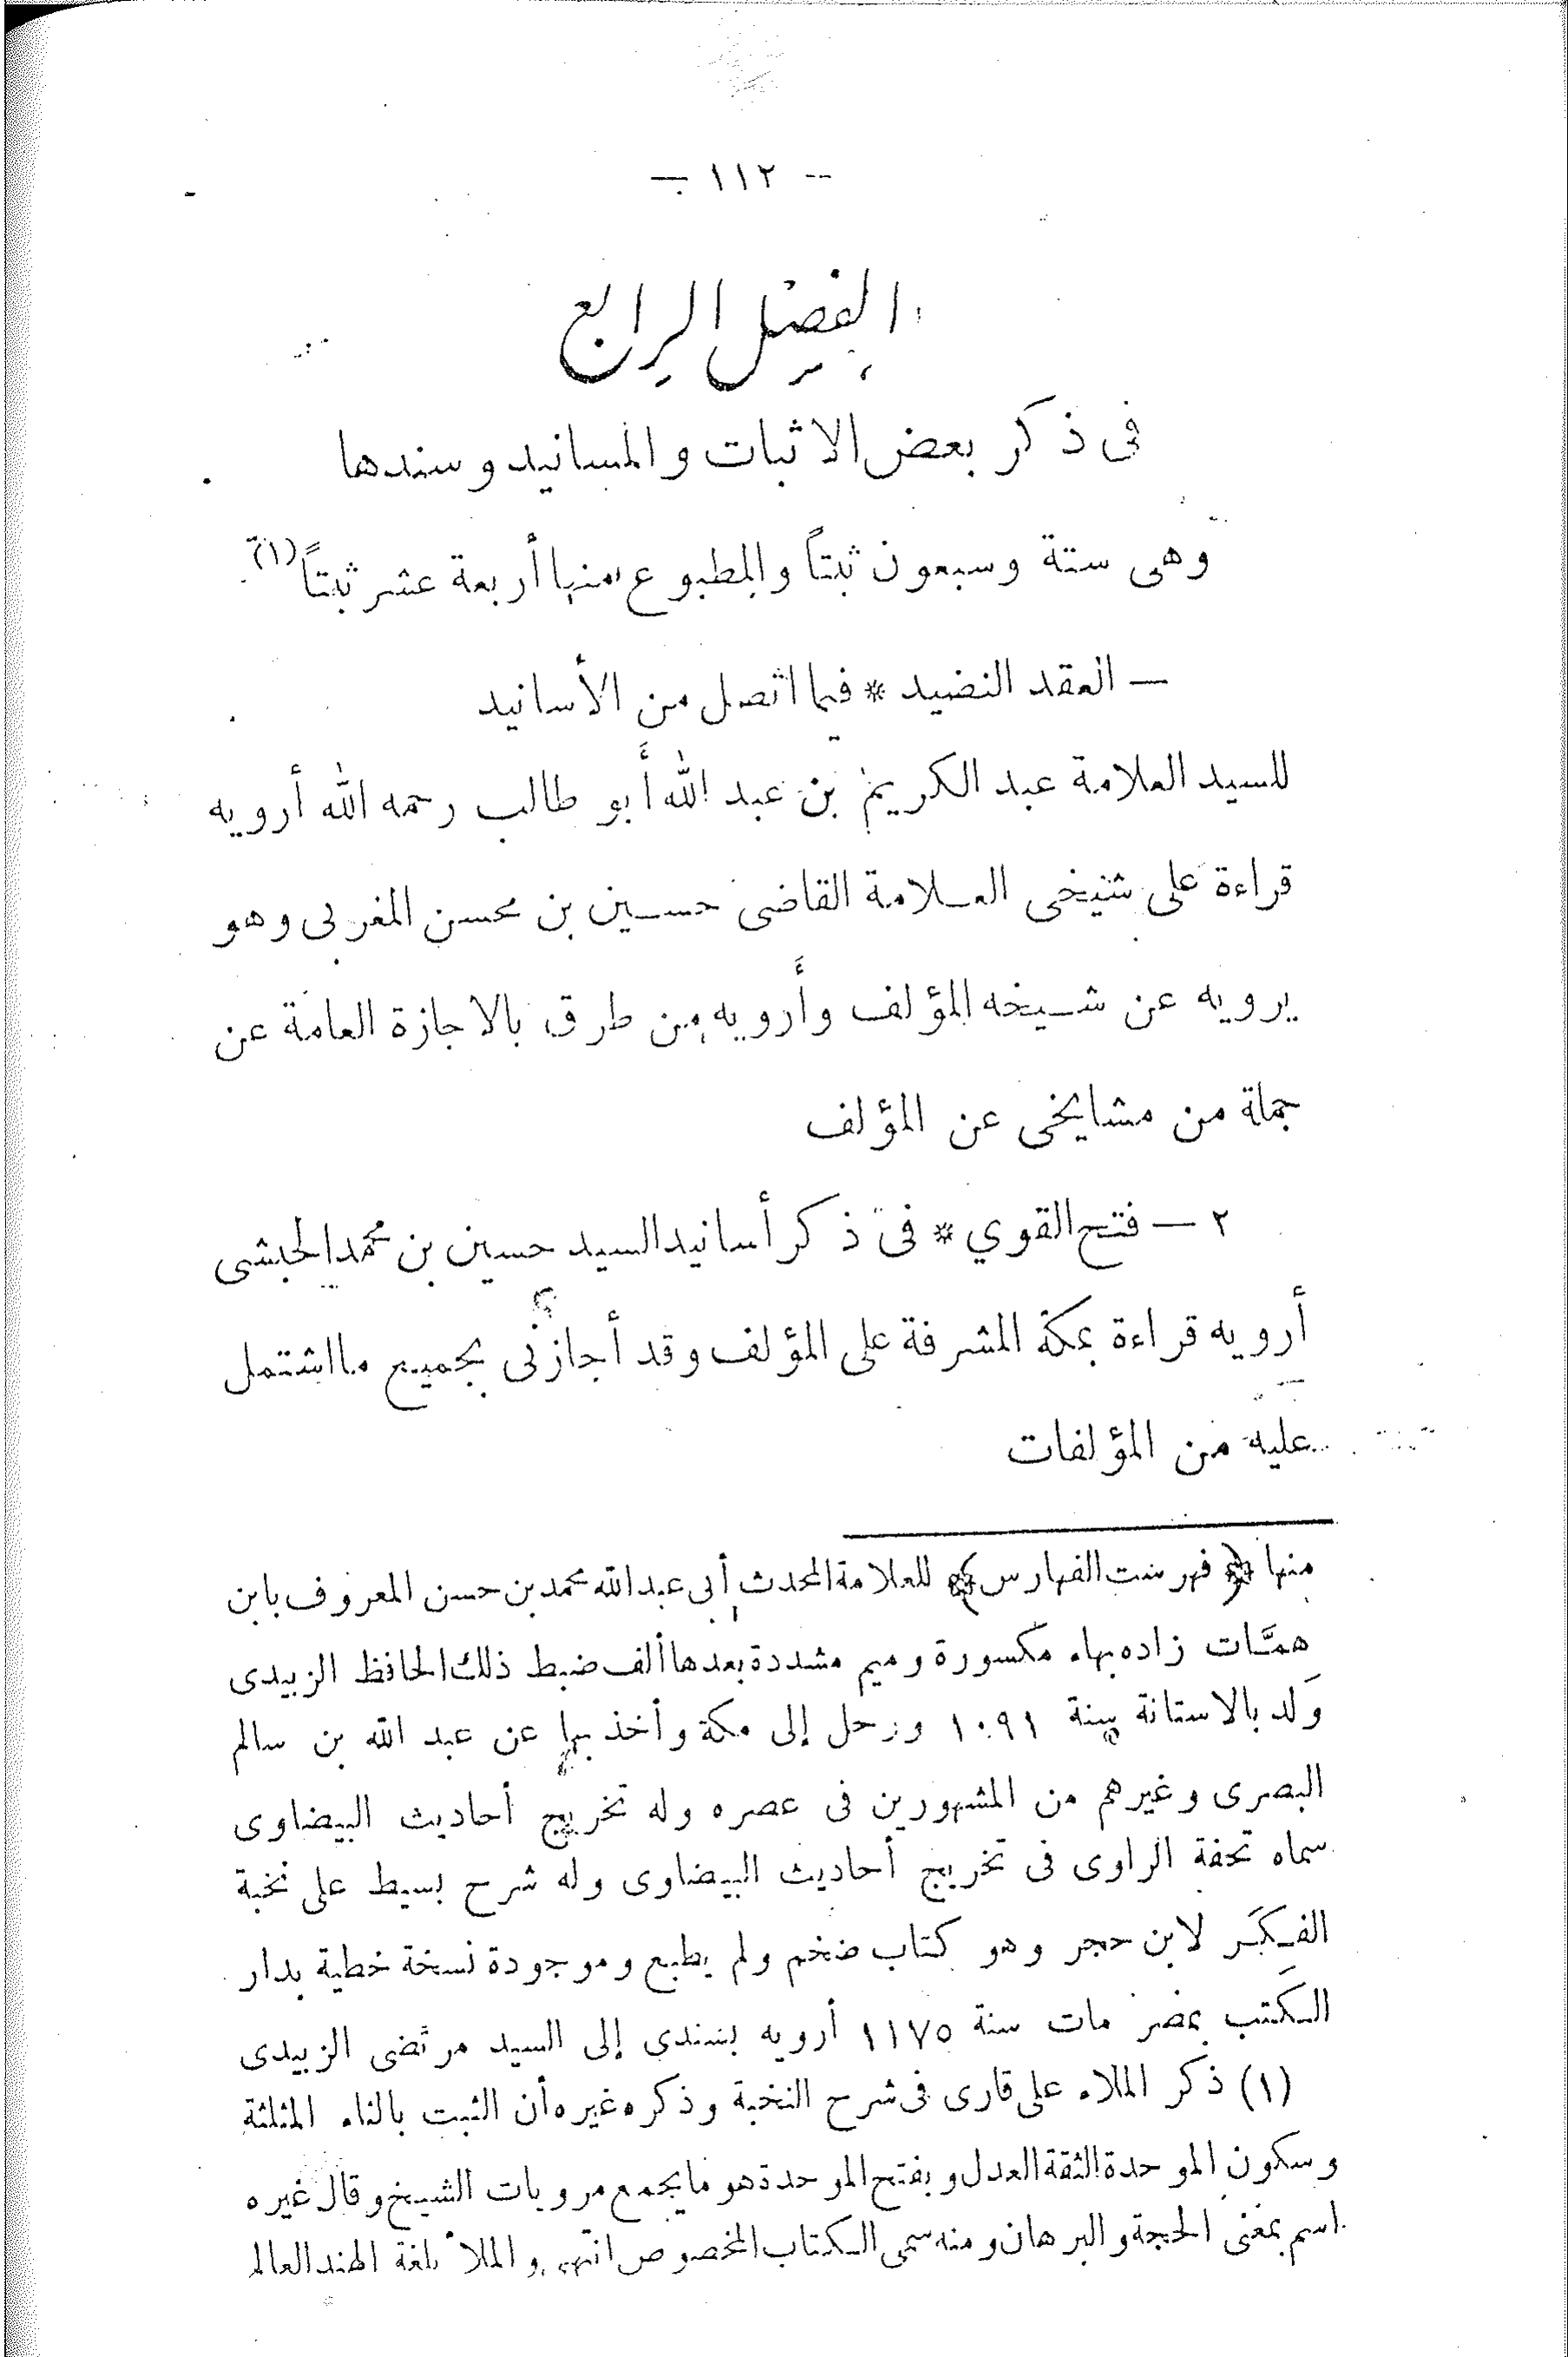 -- ١١٢ --
الفصل الرابع
فى ذكر بعض الاثبات والمسانيد وسندها
وهى ستة وسبعون ثبتاً والمطبوع منها أربعة عشر ثبتاً (١)
— العقد النضيد * فيما اتصل من الأسانيد
للسيد العلامة عبد الكريم بن عبد الله أبو طالب رحمه الله أرويه
قراءة على شيخى العلامة القاضى حسين بن محسن المغربى وهو
يرويه عن شيخه المؤلف وأرويه من طرق بالاجازة العامة عن
جملة من مشايخى عن المؤلف
٢ — فتح القوي * فى ذكر أسانيد السيد حسين بن محمد الحبشى
أرويه قراءة بمكة المشرفة على المؤلف وقد أجازنى بجميع ما اشتمل
عليه من المؤلفات
منها ﴿ فهرست الفهارس ﴾ للعلامة المحدث أبى عبد الله محمد بن حسن المعروف بابن
همَّات زاده بهاء مكسورة وميم مشددة بعدها ألف ضبط ذلك الحافظ الزبيدى
وَلد بالاستانة سنة ١٠٩١ ورحل إلى مكة وأخذ بها عن عبد الله بن سالم
البصرى وغيرهم من المشهورين فى عصره وله تخريج أحاديث البيضاوى
سماه تحفة الراوى فى تخريج أحاديث البيضاوى وله شرح بسيط على نخبة
الفِكَر لابن حجر وهو كتاب ضخم ولم يطبع وموجودة نسخة خطية بدار
الكتب بمصر مات سنة ١١٧٥ أرويه بسندى إلى السيد مرتضى الزبيدى
(١) ذكر الملاء على قارى فى شرح النخبة وذكره غيره أن الثبت بالثاء المثلثة
وسكون الموحدة الثقة العدل وبفتح الموحدة هو ما يجمع مرويات الشيخ وقال غيره
اسم بمعنى الحجة والبرهان ومنه سمى الكتاب المخصوص انتهى والملأ بلغة الهند العالم